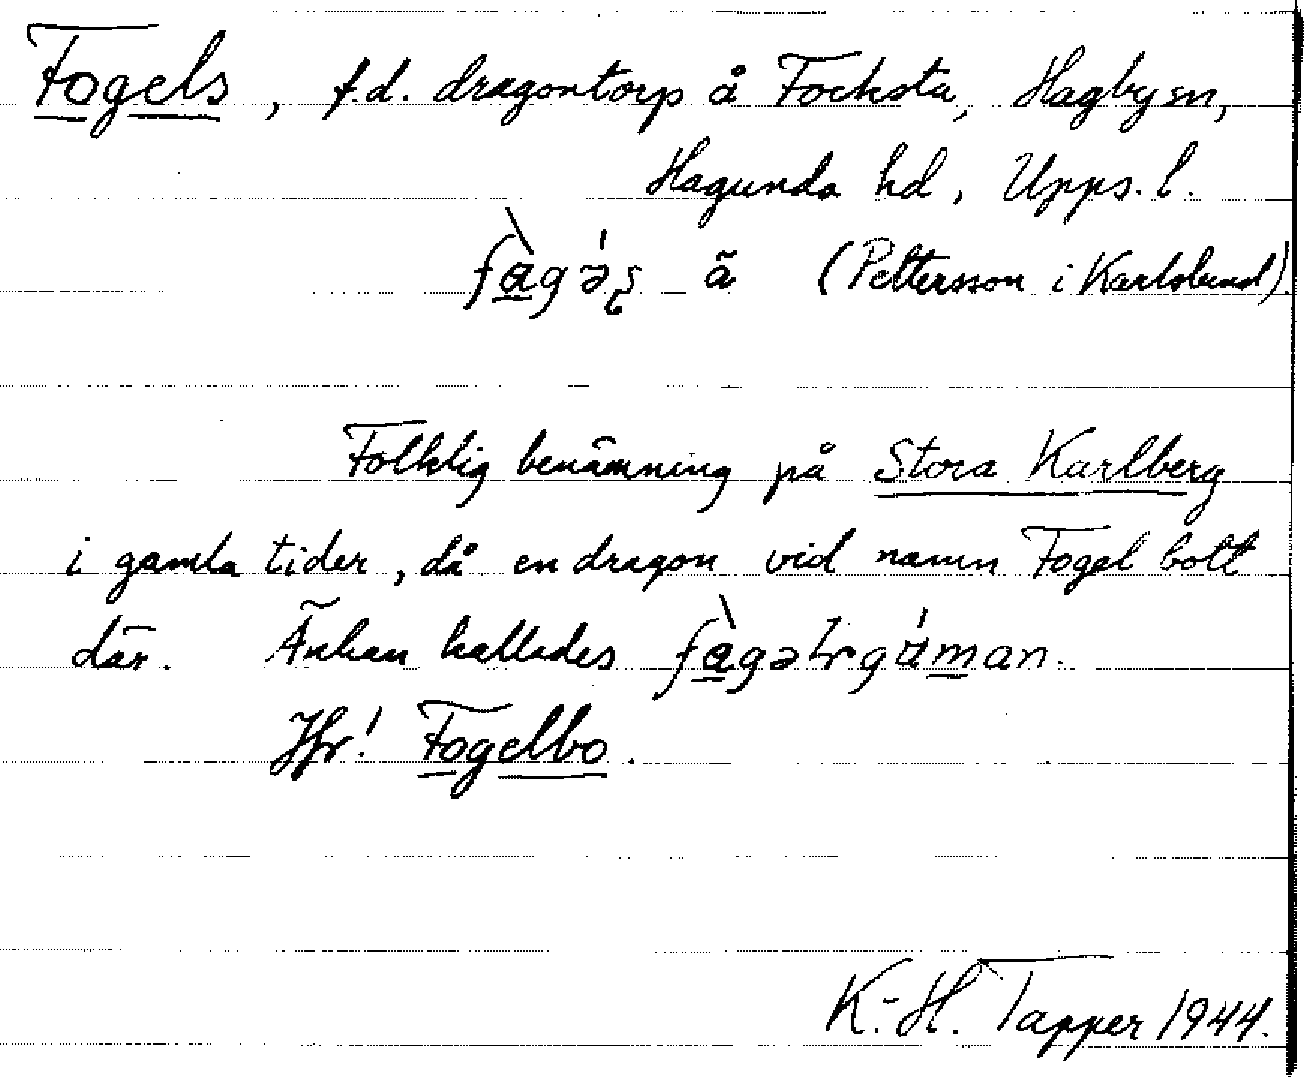 Fogels, f.d. dragontorp å Focksta, Hagby sn,
Hagunda hd, Upps. l.
ã (Pettersson i Karlslund).
Folklig benämning på Stora Karlberg
i gamla tider, då en dragon vid namn Fogel bott
där. Änkan kallades
Jfr! Fogelbo.
K.-H. Tapper 1944.